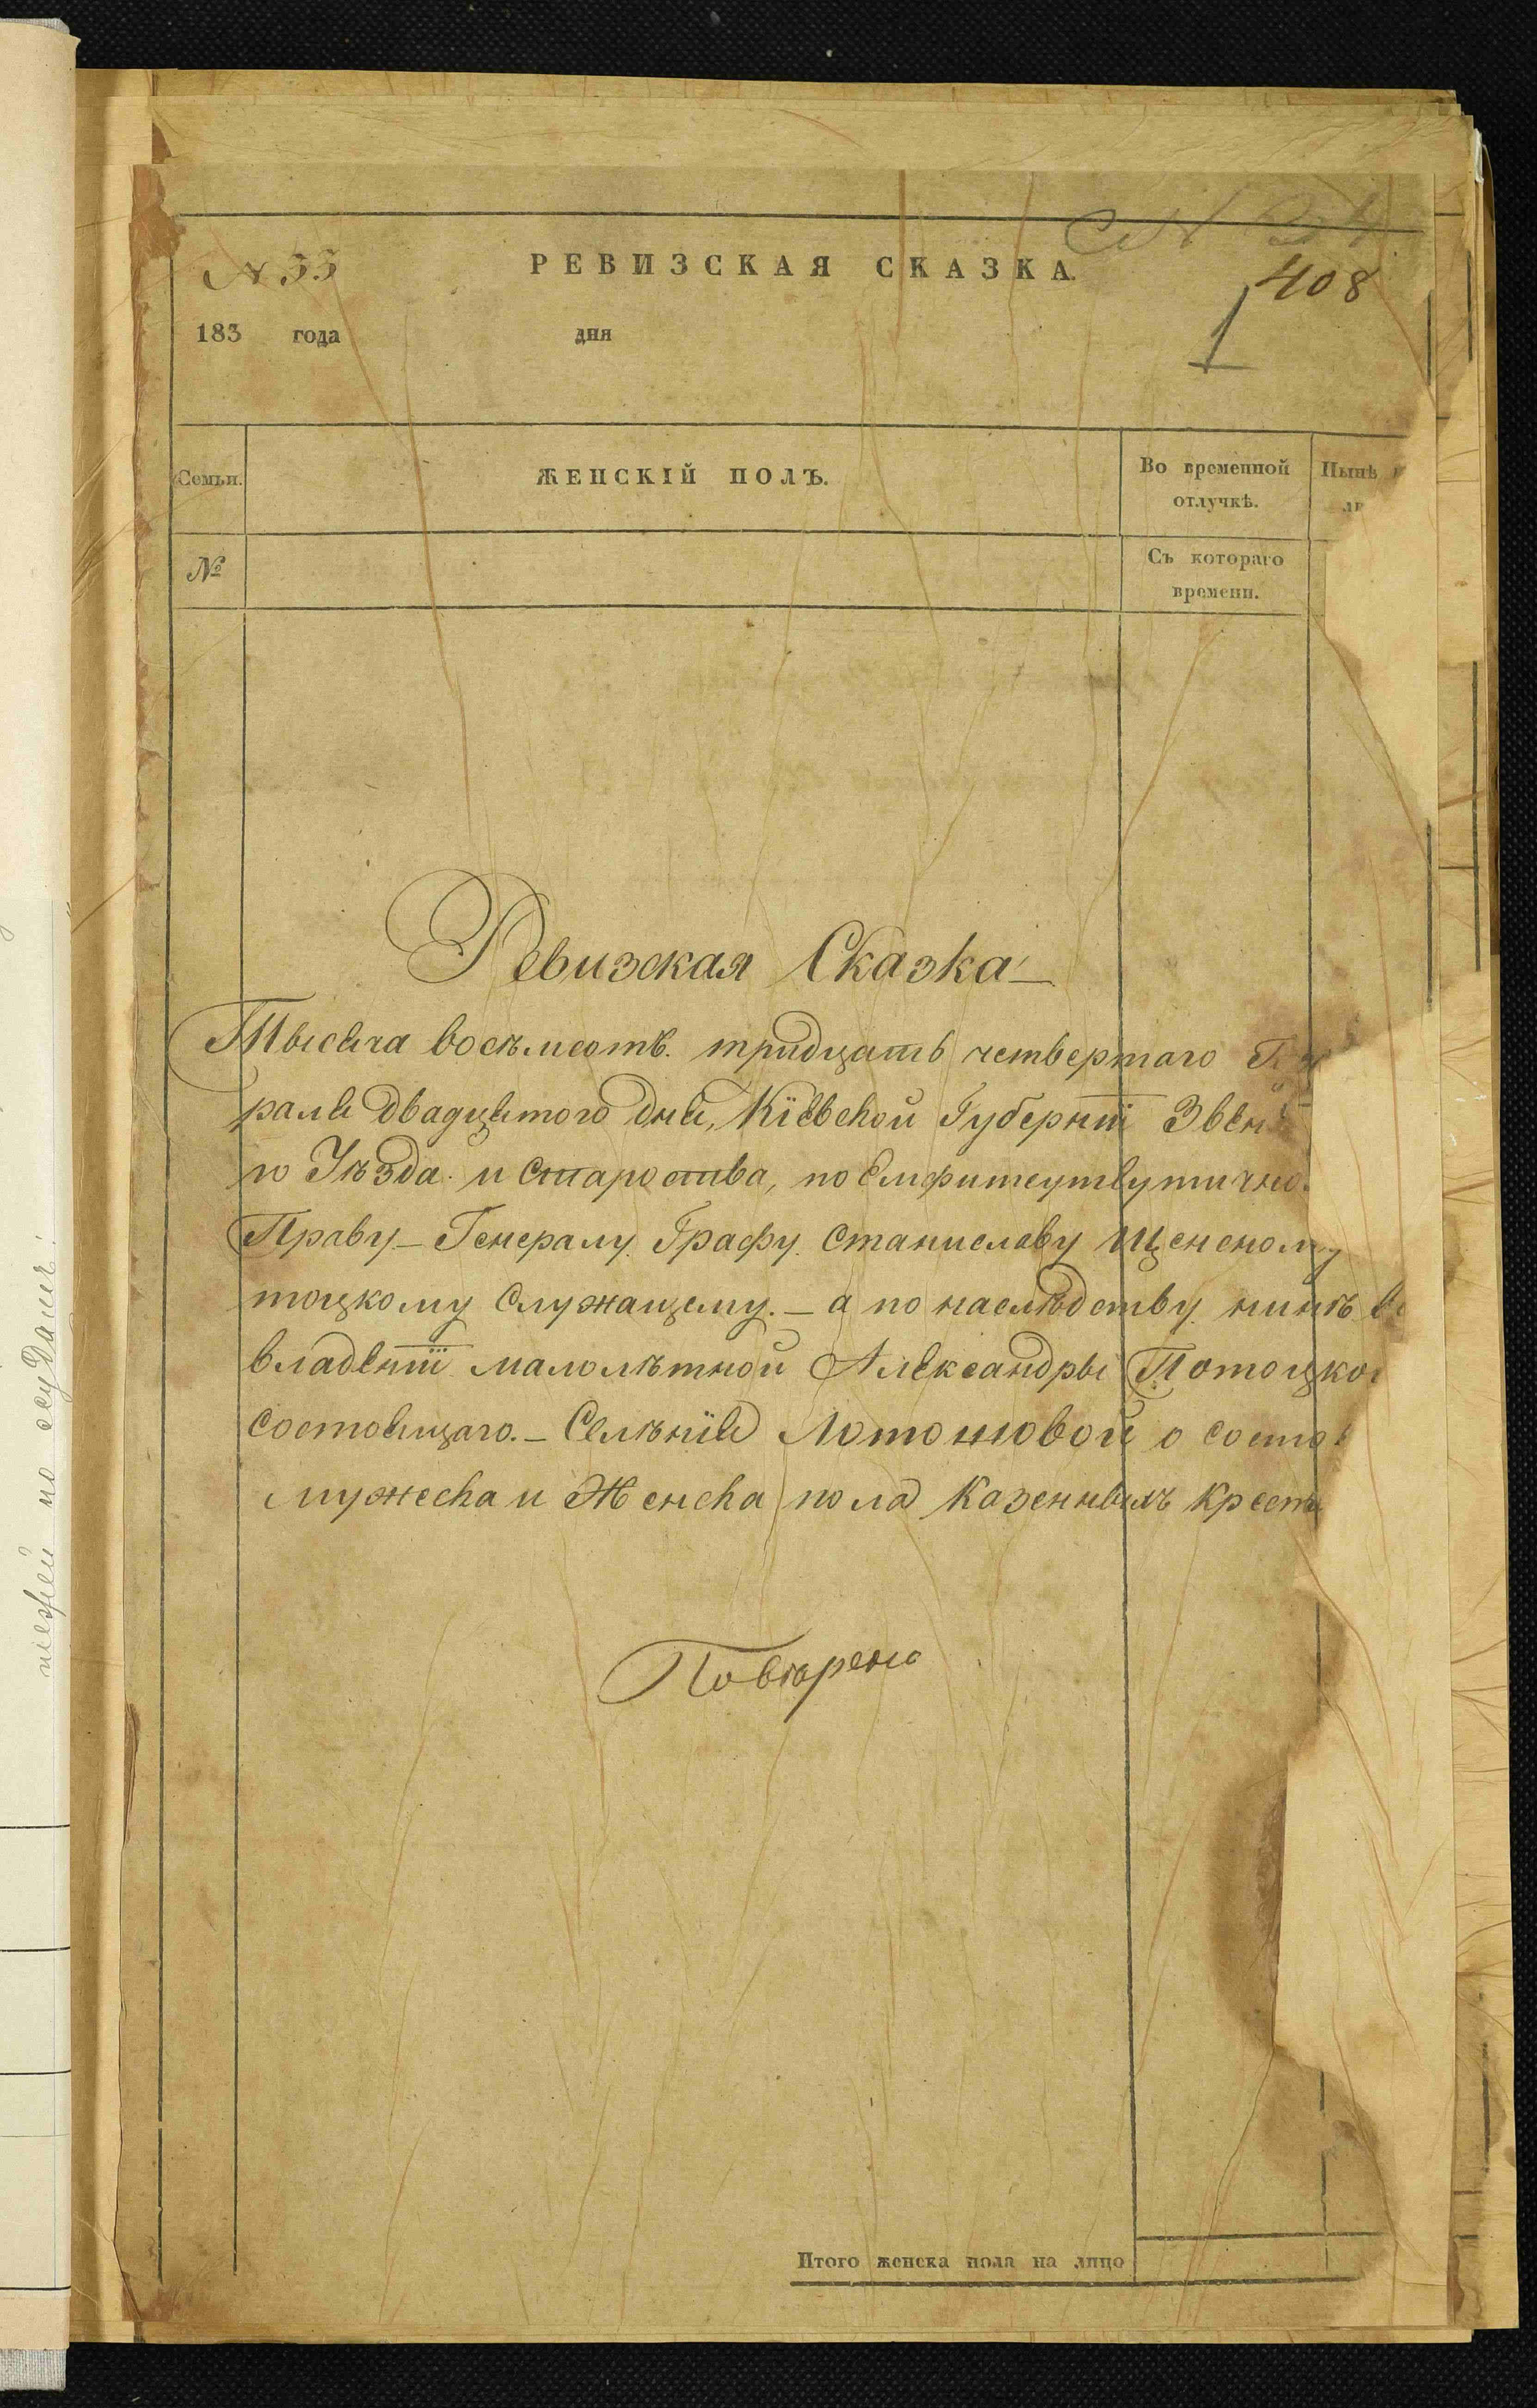 N 53
РЕВИЗСКАЯ СКАЗКА.
408
1
183 года дня
Семьи.
ЖЕНСКІЙ ПОЛЪ.
Во временной
отлучкѣ.
Нынѣ
№
Съ котораго
времени.
Ревизская Сказка
Тысеча восѣмсотъ. тридцать четвертаго
раля двадцятого дня, Кіевской Губерніи Звен
го Уѣзда. и Староства, по Емфитеутвутично
Праву – Генералу Графу Станиславу Щенсному
тоцкому Служащему. – а по наслѣдству нинѣ
владеніи малолѣтной Александры Потоцко
состоящаго. – Селѣнія Лотошовой о состо
мужеска и Женска пола Казенныхъ Кресть
Повѣрено
Итого женска пола на лицо